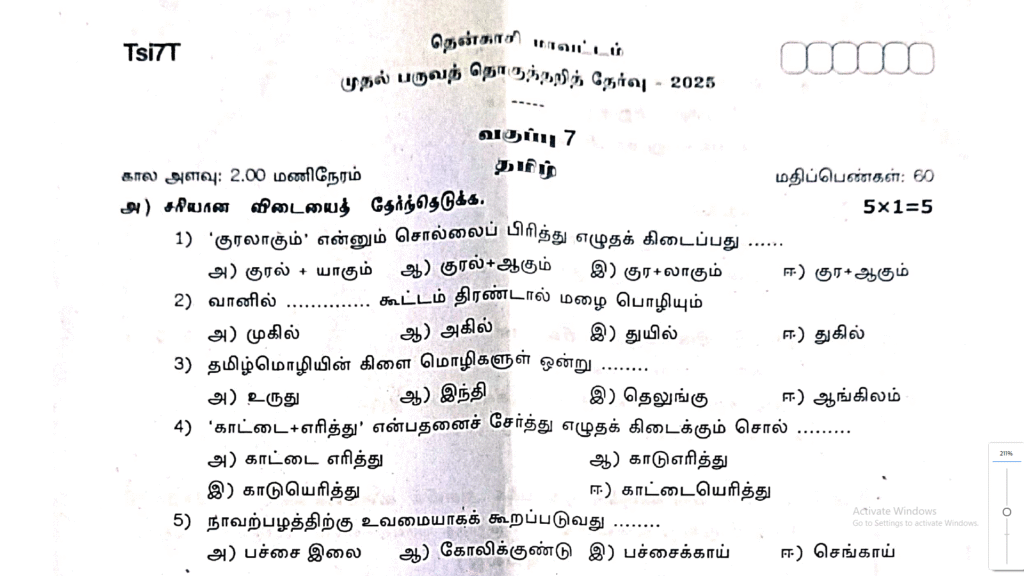 Tsi7T
தென்காசி மாவட்டம்
முதல் பருவத் தொகுத்தறித் தேர்வு - 2025
-----
வகுப்பு 7
தமிழ்
கால அளவு: 2.00 மணிநேரம் மதிப்பெண்கள்: 60
அ) சரியான விடையைத் தேர்ந்தெடுக்க. 5×1=5
1) 'குரலாகும்' என்னும் சொல்லைப் பிரித்து எழுதக் கிடைப்பது ......
அ) குரல் + யாகும் ஆ) குரல்+ஆகும் இ) குர+லாகும் ஈ) குர+ஆகும்
2) வானில் .............. கூட்டம் திரண்டால் மழை பொழியும்
அ) முகில் ஆ) அகில் இ) துயில் ஈ) துகில்
3) தமிழ்மொழியின் கிளை மொழிகளுள் ஒன்று ........
அ) உருது ஆ) இந்தி இ) தெலுங்கு ஈ) ஆங்கிலம்
4) 'காட்டை+எரித்து' என்பதனைச் சேர்த்து எழுதக் கிடைக்கும் சொல் .........
அ) காட்டை எரித்து ஆ) காடுஎரித்து
இ) காடுயெரித்து ஈ) காட்டையெரித்து
5) நாவற்பழத்திற்கு உவமையாகக் கூறப்படுவது ........
அ) பச்சை இலை ஆ) கோலிக்குண்டு இ) பச்சைக்காய் ஈ) செங்காய்
211%
Activate Windows
Go to Settings to activate Windows.